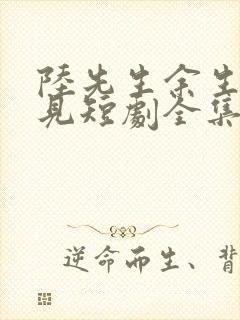 陸先生余生
見短劇全集
逆命而生、背